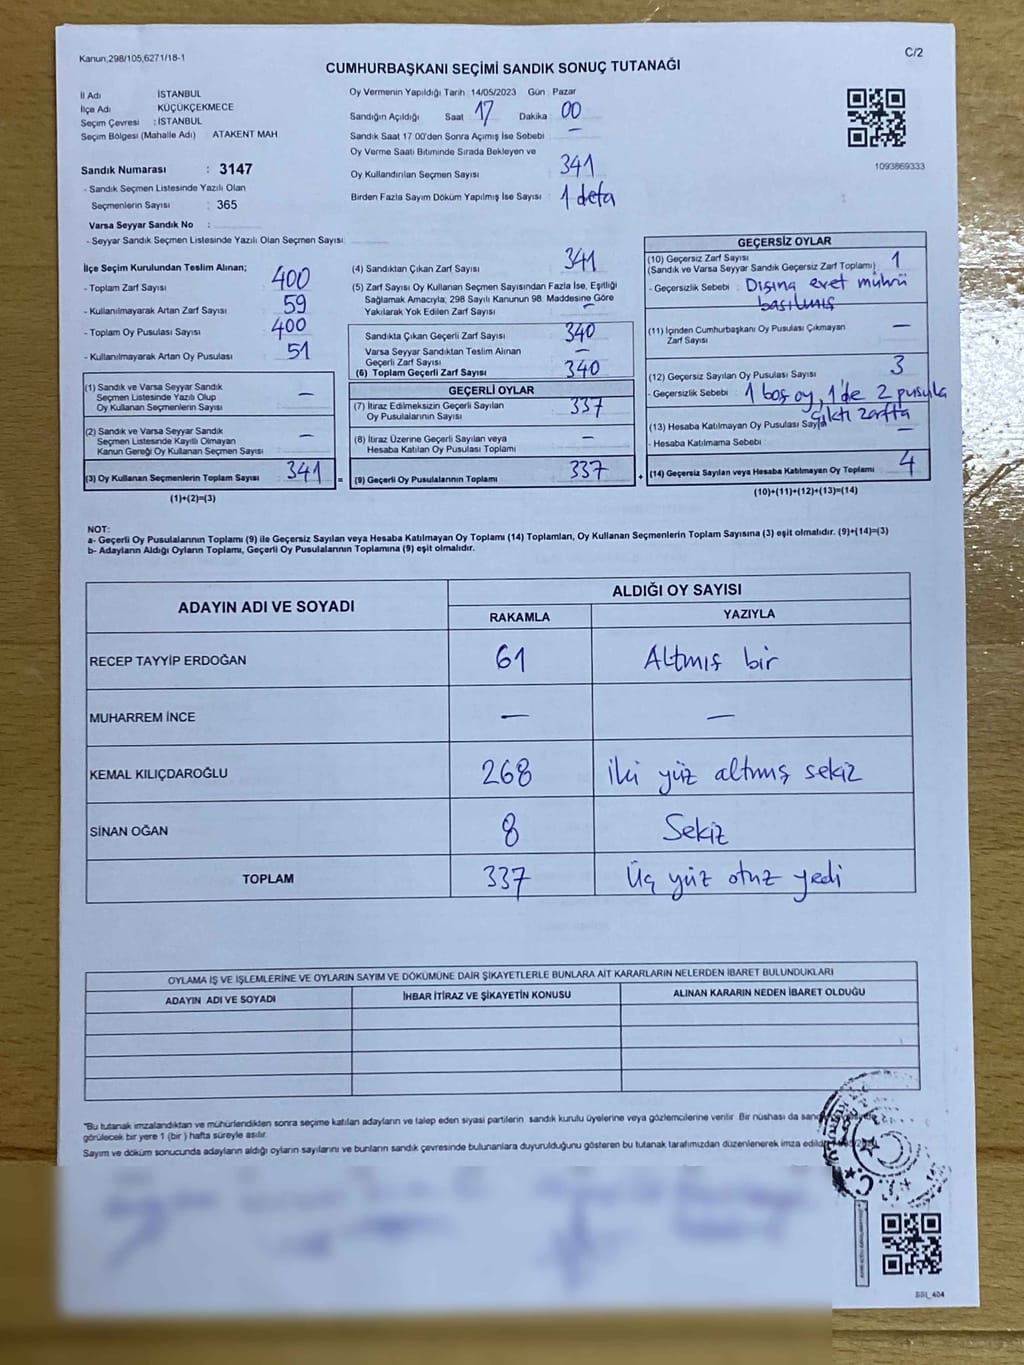 Kanun,298/105,6271/18-1
C/2
CUMHURBAŞKANI SEÇİMİ SANDIK SONUÇ TUTANAĞI
İl Adı İSTANBUL
İlçe Adı KÜÇÜKÇEKMECE
Seçim Çevresi : İSTANBUL
Seçim Bölgesi (Mahalle Adı) ATAKENT MAH
Sandık Numarası : 3147
- Sandık Seçmen Listesinde Yazılı Olan
Seçmenlerin Sayısı : 365
Varsa Seyyar Sandık No :
- Seyyar Sandık Seçmen Listesinde Yazılı Olan Seçmen Sayısı:
Oy Vermenin Yapıldığı Tarih : 14/05/2023 Gün : Pazar
Sandığın Açıldığı Saat 17 Dakika 00
Sandık Saat 17:00'den Sonra Açımış İse Sebebi —
Oy Verme Saati Bitiminde Sırada Bekleyen ve
Oy Kullandırılan Seçmen Sayısı 341
Birden Fazla Sayım Döküm Yapılmış İse Sayısı : 1 defa
1093869333
İlçe Seçim Kurulundan Teslim Alınan;
- Toplam Zarf Sayısı 400
- Kullanılmayarak Artan Zarf Sayısı 59
- Toplam Oy Pusulası Sayısı 400
- Kullanılmayarak Artan Oy Pusulası 51
(1) Sandık ve Varsa Seyyar Sandık
Seçmen Listesinde Yazılı Olup
Oy Kullanan Seçmenlerin Sayısı —
(2) Sandık ve Varsa Seyyar Sandık
Seçmen Listesinde Kayıtlı Olmayan
Kanun Gereği Oy Kullanan Seçmen Sayısı —
(3) Oy Kullanan Seçmenlerin Toplam Sayısı 341 =
(1)+(2)=(3)
(4) Sandıktan Çıkan Zarf Sayısı 341
(5) Zarf Sayısı Oy Kullanan Seçmen Sayısından Fazla İse, Eşitliği
Sağlamak Amacıyla; 298 Sayılı Kanunun 98. Maddesine Göre
Yakılarak Yok Edilen Zarf Sayısı —
Sandıkta Çıkan Geçerli Zarf Sayısı 340
Varsa Seyyar Sandıktan Teslim Alınan
Geçerli Zarf Sayısı —
(6) Toplam Geçerli Zarf Sayısı 340
GEÇERLİ OYLAR
(7) İtiraz Edilmeksizin Geçerli Sayılan
Oy Pusulalarının Sayısı 337
(8) İtiraz Üzerine Geçerli Sayılan veya
Hesaba Katılan Oy Pusulası Toplamı —
(9) Geçerli Oy Pusulalarının Toplamı 337 +
GEÇERSİZ OYLAR
(10) Geçersiz Zarf Sayısı
(Sandık ve Varsa Seyyar Sandık Geçersiz Zarf Toplamı) 1
- Geçersizlik Sebebi : Dışına evet mührü
basılmış
(11) İçinden Cumhurbaşkanı Oy Pusulası Çıkmayan
Zarf Sayısı —
(12) Geçersiz Sayılan Oy Pusulası Sayısı 3
- Geçersizlik Sebebi : 1 boş oy, 1'de 2 pusula
çıktı zarfta
(13) Hesaba Katılmayan Oy Pusulası Sayısı —
- Hesaba Katılmama Sebebi
(14) Geçersiz Sayılan veya Hesaba Katılmayan Oy Toplamı 4
(10)+(11)+(12)+(13)=(14)
NOT:
a- Geçerli Oy Pusulalarının Toplamı (9) ile Geçersiz Sayılan veya Hesaba Katılmayan Oy Toplamı (14) Toplamları, Oy Kullanan Seçmenlerin Toplam Sayısına (3) eşit olmalıdır. (9)+(14)=(3)
b- Adayların Aldığı Oyların Toplamı, Geçerli Oy Pusulalarının Toplamına (9) eşit olmalıdır.
ADAYIN ADI VE SOYADI
ALDIĞI OY SAYISI
RAKAMLA YAZIYLA
RECEP TAYYİP ERDOĞAN 61 Altmış bir
MUHARREM İNCE — —
KEMAL KILIÇDAROĞLU 268 iki yüz altmış sekiz
SİNAN OĞAN 8 Sekiz
TOPLAM 337 Üç yüz otuz yedi
OYLAMA İŞ VE İŞLEMLERİNE VE OYLARIN SAYIM VE DÖKÜMÜNE DAİR ŞİKAYETLERLE BUNLARA AİT KARARLARIN NELERDEN İBARET BULUNDUKLARI
ADAYIN ADI VE SOYADI İHBAR İTİRAZ VE ŞİKAYETİN KONUSU ALINAN KARARIN NEDEN İBARET OLDUĞU
*Bu tutanak imzalandıktan ve mühürlendikten sonra seçime katılan adayların ve talep eden siyasi partilerin sandık kurulu üyelerine veya gözlemcilerine verilir. Bir nüshası da
görülecek bir yere 1 (bir) hafta süreyle asılır.
Sayım ve döküm sonucunda adayların aldığı oyların sayılarını ve bunların sandık çevresinde bulunanlara duyurulduğunu gösteren bu tutanak tarafımızdan düzenlenerek imza